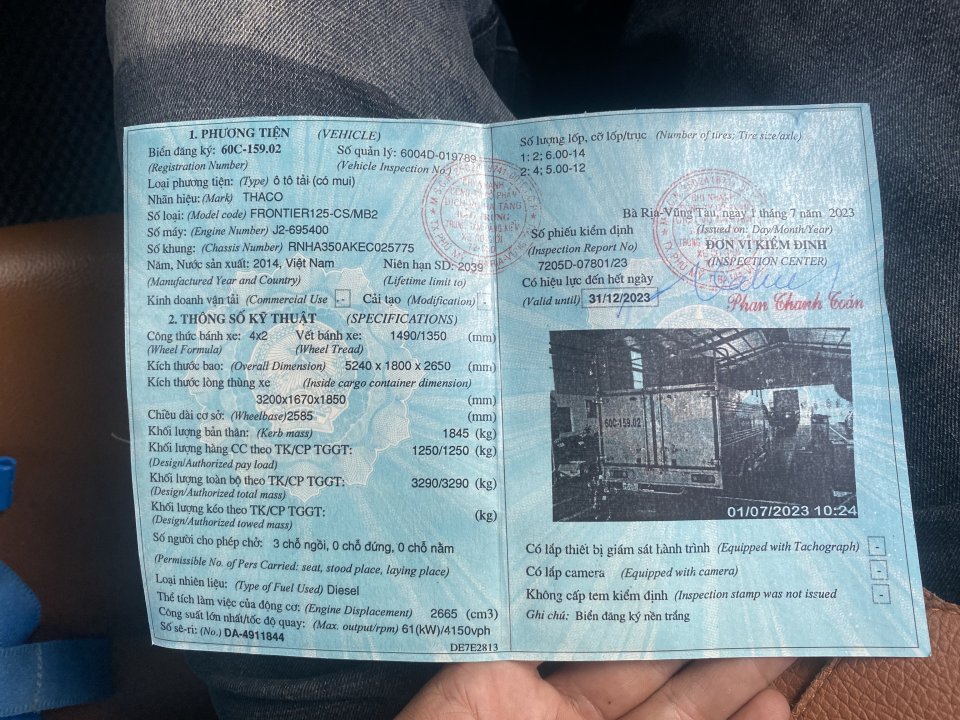 1. PHƯƠNG TIỆN (VEHICLE)
Biển đăng ký: 60C-159.02 Số quản lý: 6004D-019789
(Registration Number) (Vehicle Inspection No.)
Loại phương tiện: (Type) ô tô tải (có mui)
Nhãn hiệu: (Mark) THACO
Số loại: (Model code) FRONTIER125-CS/MB2
Số máy: (Engine Number) J2-695400
Số khung: (Chassis Number) RNHA350AKEC025775
Năm, Nước sản xuất: 2014, Việt Nam Niên hạn SD: 2039
(Manufactured Year and Country) (Lifetime limit to)
Kinh doanh vận tải (Commercial Use) - Cải tạo (Modification) -
2. THÔNG SỐ KỸ THUẬT (SPECIFICATIONS)
Công thức bánh xe: 4x2 Vết bánh xe: 1490/1350 (mm)
(Wheel Formula) (Wheel Tread)
Kích thước bao: (Overall Dimension) 5240 x 1800 x 2650 (mm)
Kích thước lòng thùng xe (Inside cargo container dimension)
3200x1670x1850 (mm)
Chiều dài cơ sở: (Wheelbase) 2585 (mm)
Khối lượng bản thân: (Kerb mass) 1845 (kg)
Khối lượng hàng CC theo TK/CP TGGT: 1250/1250 (kg)
(Design/Authorized pay load)
Khối lượng toàn bộ theo TK/CP TGGT: 3290/3290 (kg)
(Design/Authorized total mass)
Khối lượng kéo theo TK/CP TGGT: (kg)
(Design/Authorized towed mass)
Số người cho phép chở: 3 chỗ ngồi, 0 chỗ đứng, 0 chỗ nằm
(Permissible No. of Pers Carried: seat, stood place, laying place)
Loại nhiên liệu: (Type of Fuel Used) Diesel
Thể tích làm việc của động cơ: (Engine Displacement) 2665 (cm3)
Công suất lớn nhất/tốc độ quay: (Max. output/rpm) 61(kW)/4150vph
Số sê-ri: (No.) DA-4911844
DE7E2813
Số lượng lốp, cỡ lốp/trục (Number of tires; Tire size/axle)
1: 2; 6.00-14
2: 4; 5.00-12
Bà Rịa-Vũng Tàu, ngày 1 tháng 7 năm 2023
(Issued on: Day/Month/Year)
Số phiếu kiểm định ĐƠN VỊ KIỂM ĐỊNH
(Inspection Report No) (INSPECTION CENTER)
7205D-07801/23
Có hiệu lực đến hết ngày
(Valid until) 31/12/2023
Phan Thanh Toàn
60C-159.02
01/07/2023 10:24
Có lắp thiết bị giám sát hành trình (Equipped with Tachograph) -
Có lắp camera (Equipped with camera) -
Không cấp tem kiểm định (Inspection stamp was not issued -
Ghi chú: Biển đăng ký nền trắng